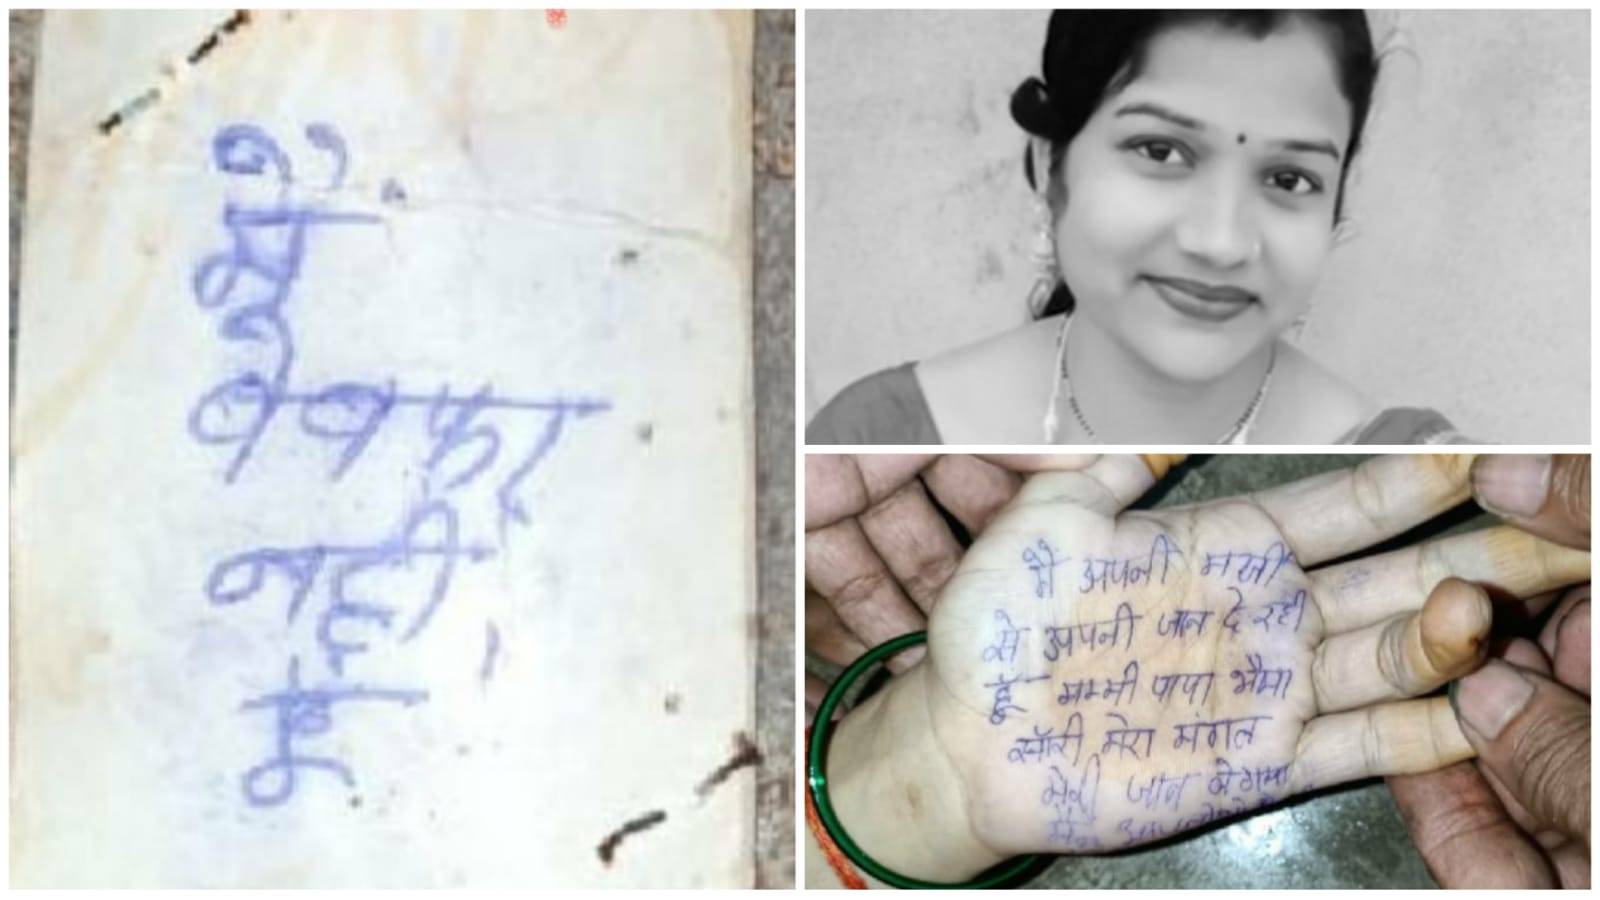 मैं
बेवफा
नही
हूँ
मैं अपनी मर्जी
से अपनी जान दे रही
हूँ मम्मी पापा भैया
सॉरी मेरा मंगल
मेरी जान ले गया